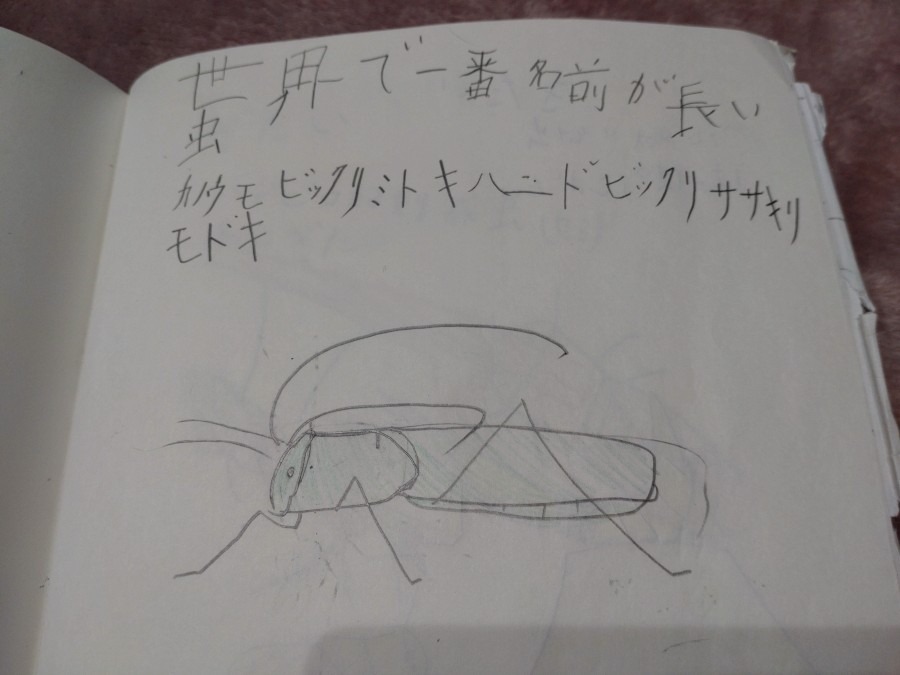 世界で一番名前が長い
虫
カノウモビックリミトキハニドビックリササキリ
モドキ